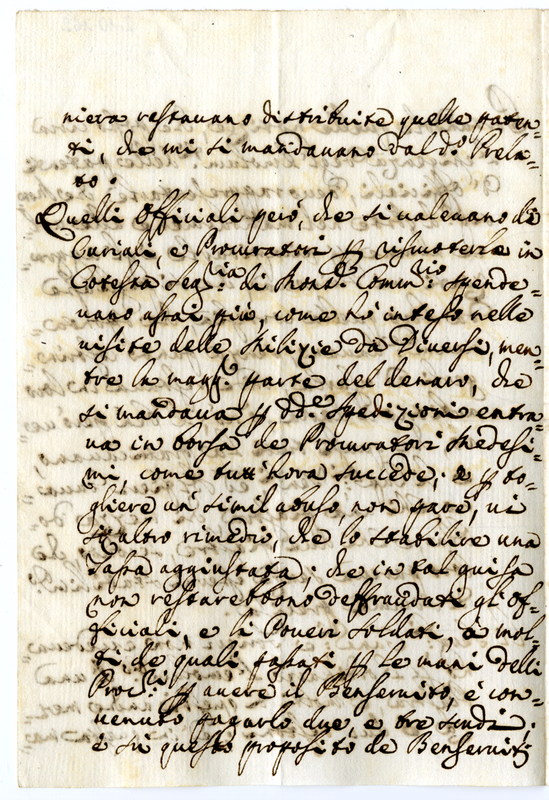 niera restauano distribuite quelle paten-
ti, che mi si mandauano dal d.º Prela-
to.
Quelli Officiali però, che si valeuano di
Curiali, e Procuratori p riscuoterle in
Cotesta Seg.ria di Mons.r Comm.rio spende-
uano assai più, come hò inteso nelle
uisite delle Milizie da Diuersi, men-
tre la magg.r parte del denaro, che
si mandaua p dd.e spedizioni entra-
ua in borsa de Procuratori medesi-
mi, come tutt'hora succede; e p to-
gliere un simil abuso, non pare, ui
sia altro rimedio, che lo stabilire una
Tassa aggiustata; che in tal guisa
non restarebbono deffraudati gl'Of-
ficiali, e li Poueri soldati, à mol-
ti de quali passati p le mani delli
Proc.ri p auere il Benseruito, è con-
uenuto pagarlo due, e tre scudi;
e su questo proposito de Benseruiti